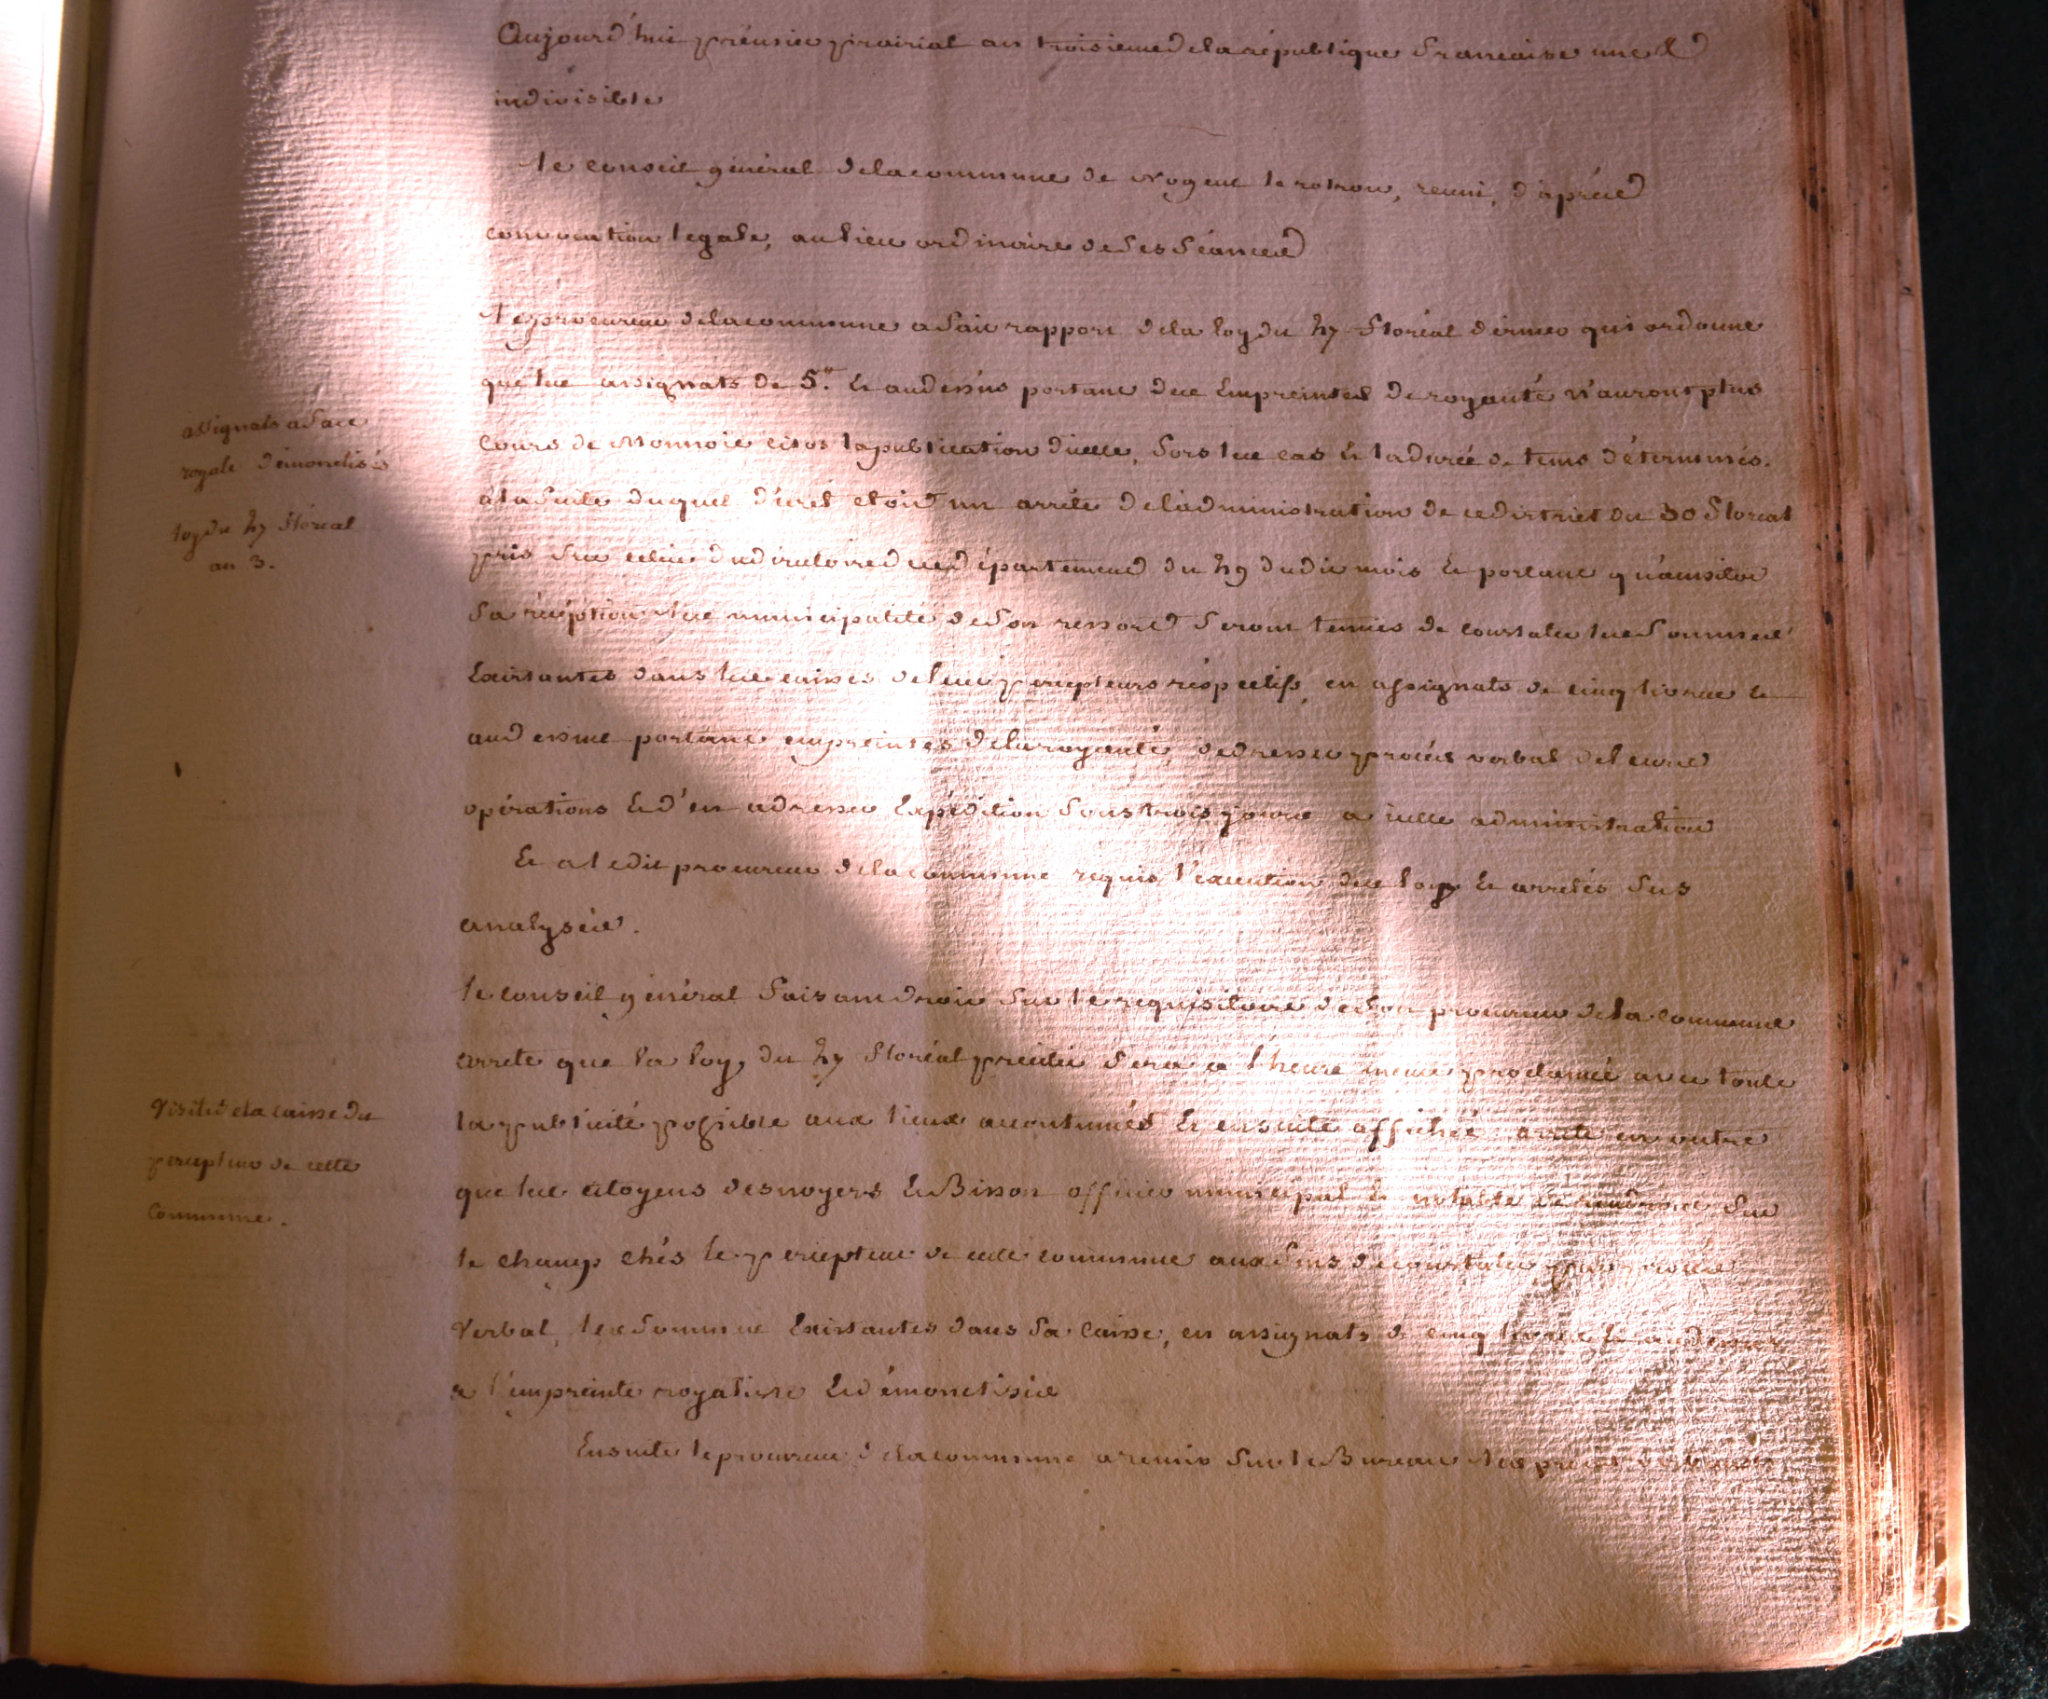 Aujourd'hui prémier prairial an troisieme de la république francaise une &
indivisible
le conseil général de la commune de Nogent le rotrou, reuni, d'après
convocation legale, au lieu ordinaire de ses séances
Le procureur de la commune a fait rapport de la loy du 27 floréal dernier qui ordonne
que les assignats de 5.# et audessus portant des Empreintes de royauté n'auront plus
Cours de Monnoie lors la publication d'icelle, fors les cas et la durée de tems déterminés.
assignats a face
royale démonetisés
loy du 27 floréal
an 3.
à la suite duquel décret etoit un arrêté de l'administration de ce district du 30 floréal
pris sur celui du directoire de ce département du 29 dudit mois et portant qu'aussitot
sa réception les municipalité de son ressort seront tenues de constater les sommes
Existantes dans les caisses de leurs percepteurs réspectifs, en assignats de cinq livres et
audessus portant empreintes de la royauté, de dresser procès verbal de leurs
opérations et d'en adresser Expédition sous trois jours a icelle administration
Et a ledit procureur de la commune requis l'execution des loy et arretés sus
analysés.
le conseil général faisant droit sur le requisitoire de son procureur de la commune
arrete que la loy du 27 floréal précité sera a l'heure meme proclamée avec toute
la publicité possible aux lieux accoutumés et ensuite affichée arrete en outre
Visite de la caisse du
percepteur de cette
Commune.
que les citoyens desnoyers et Bisson officier municipal et notable se rendront sur
le champ chés le percepteur de cette commune aux fins de constater par procès
Verbal, les sommes Existantes dans sa caisse, en assignats de cinq livres et audessus
a l'empreinte royaliste et démonetisés
Ensuite le procureur de la commune a remis sur le Bureau les procès verbaux